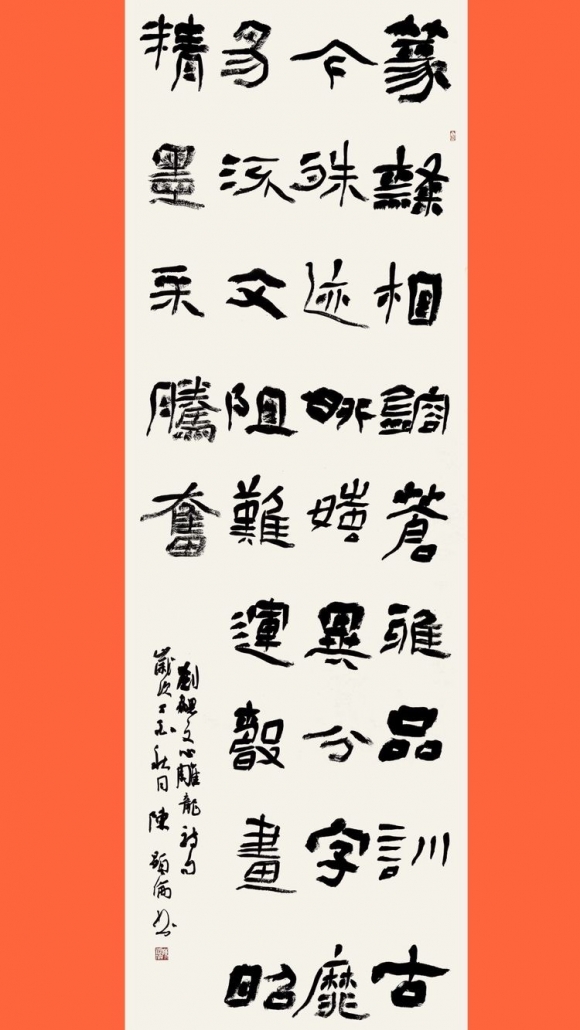 篆隸相鎔蒼雅品訓古
今殊迹妍媸異分字靡
易流文阻難運聲畫昭
精墨采騰奮
劉勰文心雕龍詩句
歲次秋日陳書